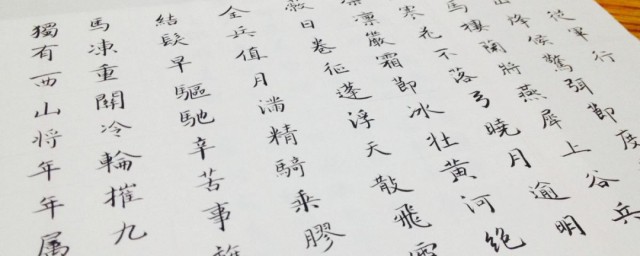 從軍行
山烽侯驚弭節度
馬樓蘭將燕犀上谷兵
寒花不落弓曉月逾明
凜嚴霜節冰壯黃河絕
蔽日卷征蓬浮天散飛雪
全兵值月滿精騎乘膠
結髮早驅馳辛苦事
馬凍重關冷輪摧九
獨有西山将年年属